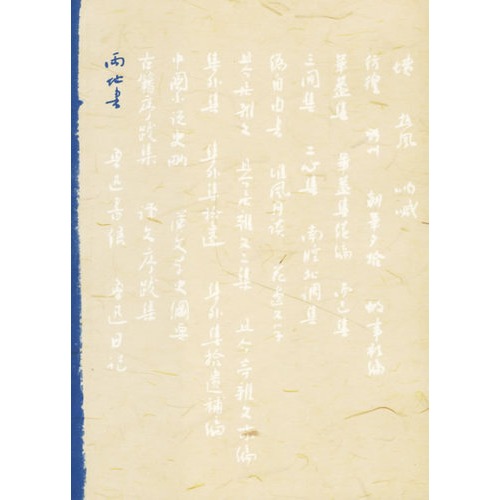 坟 热风 呐喊
彷徨 野草 朝華夕拾 故事新编
華蓋集 華蓋集续编 而已集
三闲集 二心集 南腔北调集
伪自由书 准风月谈 花边文学
且介亭杂文 且介亭杂文二集 且介亭杂文末编
集外集 集外集拾遗 集外集拾遗補编
中国小说史略 汉文学史纲要
古籍序跋集 译文序跋集
两地书 鲁迅书信 鲁迅日记